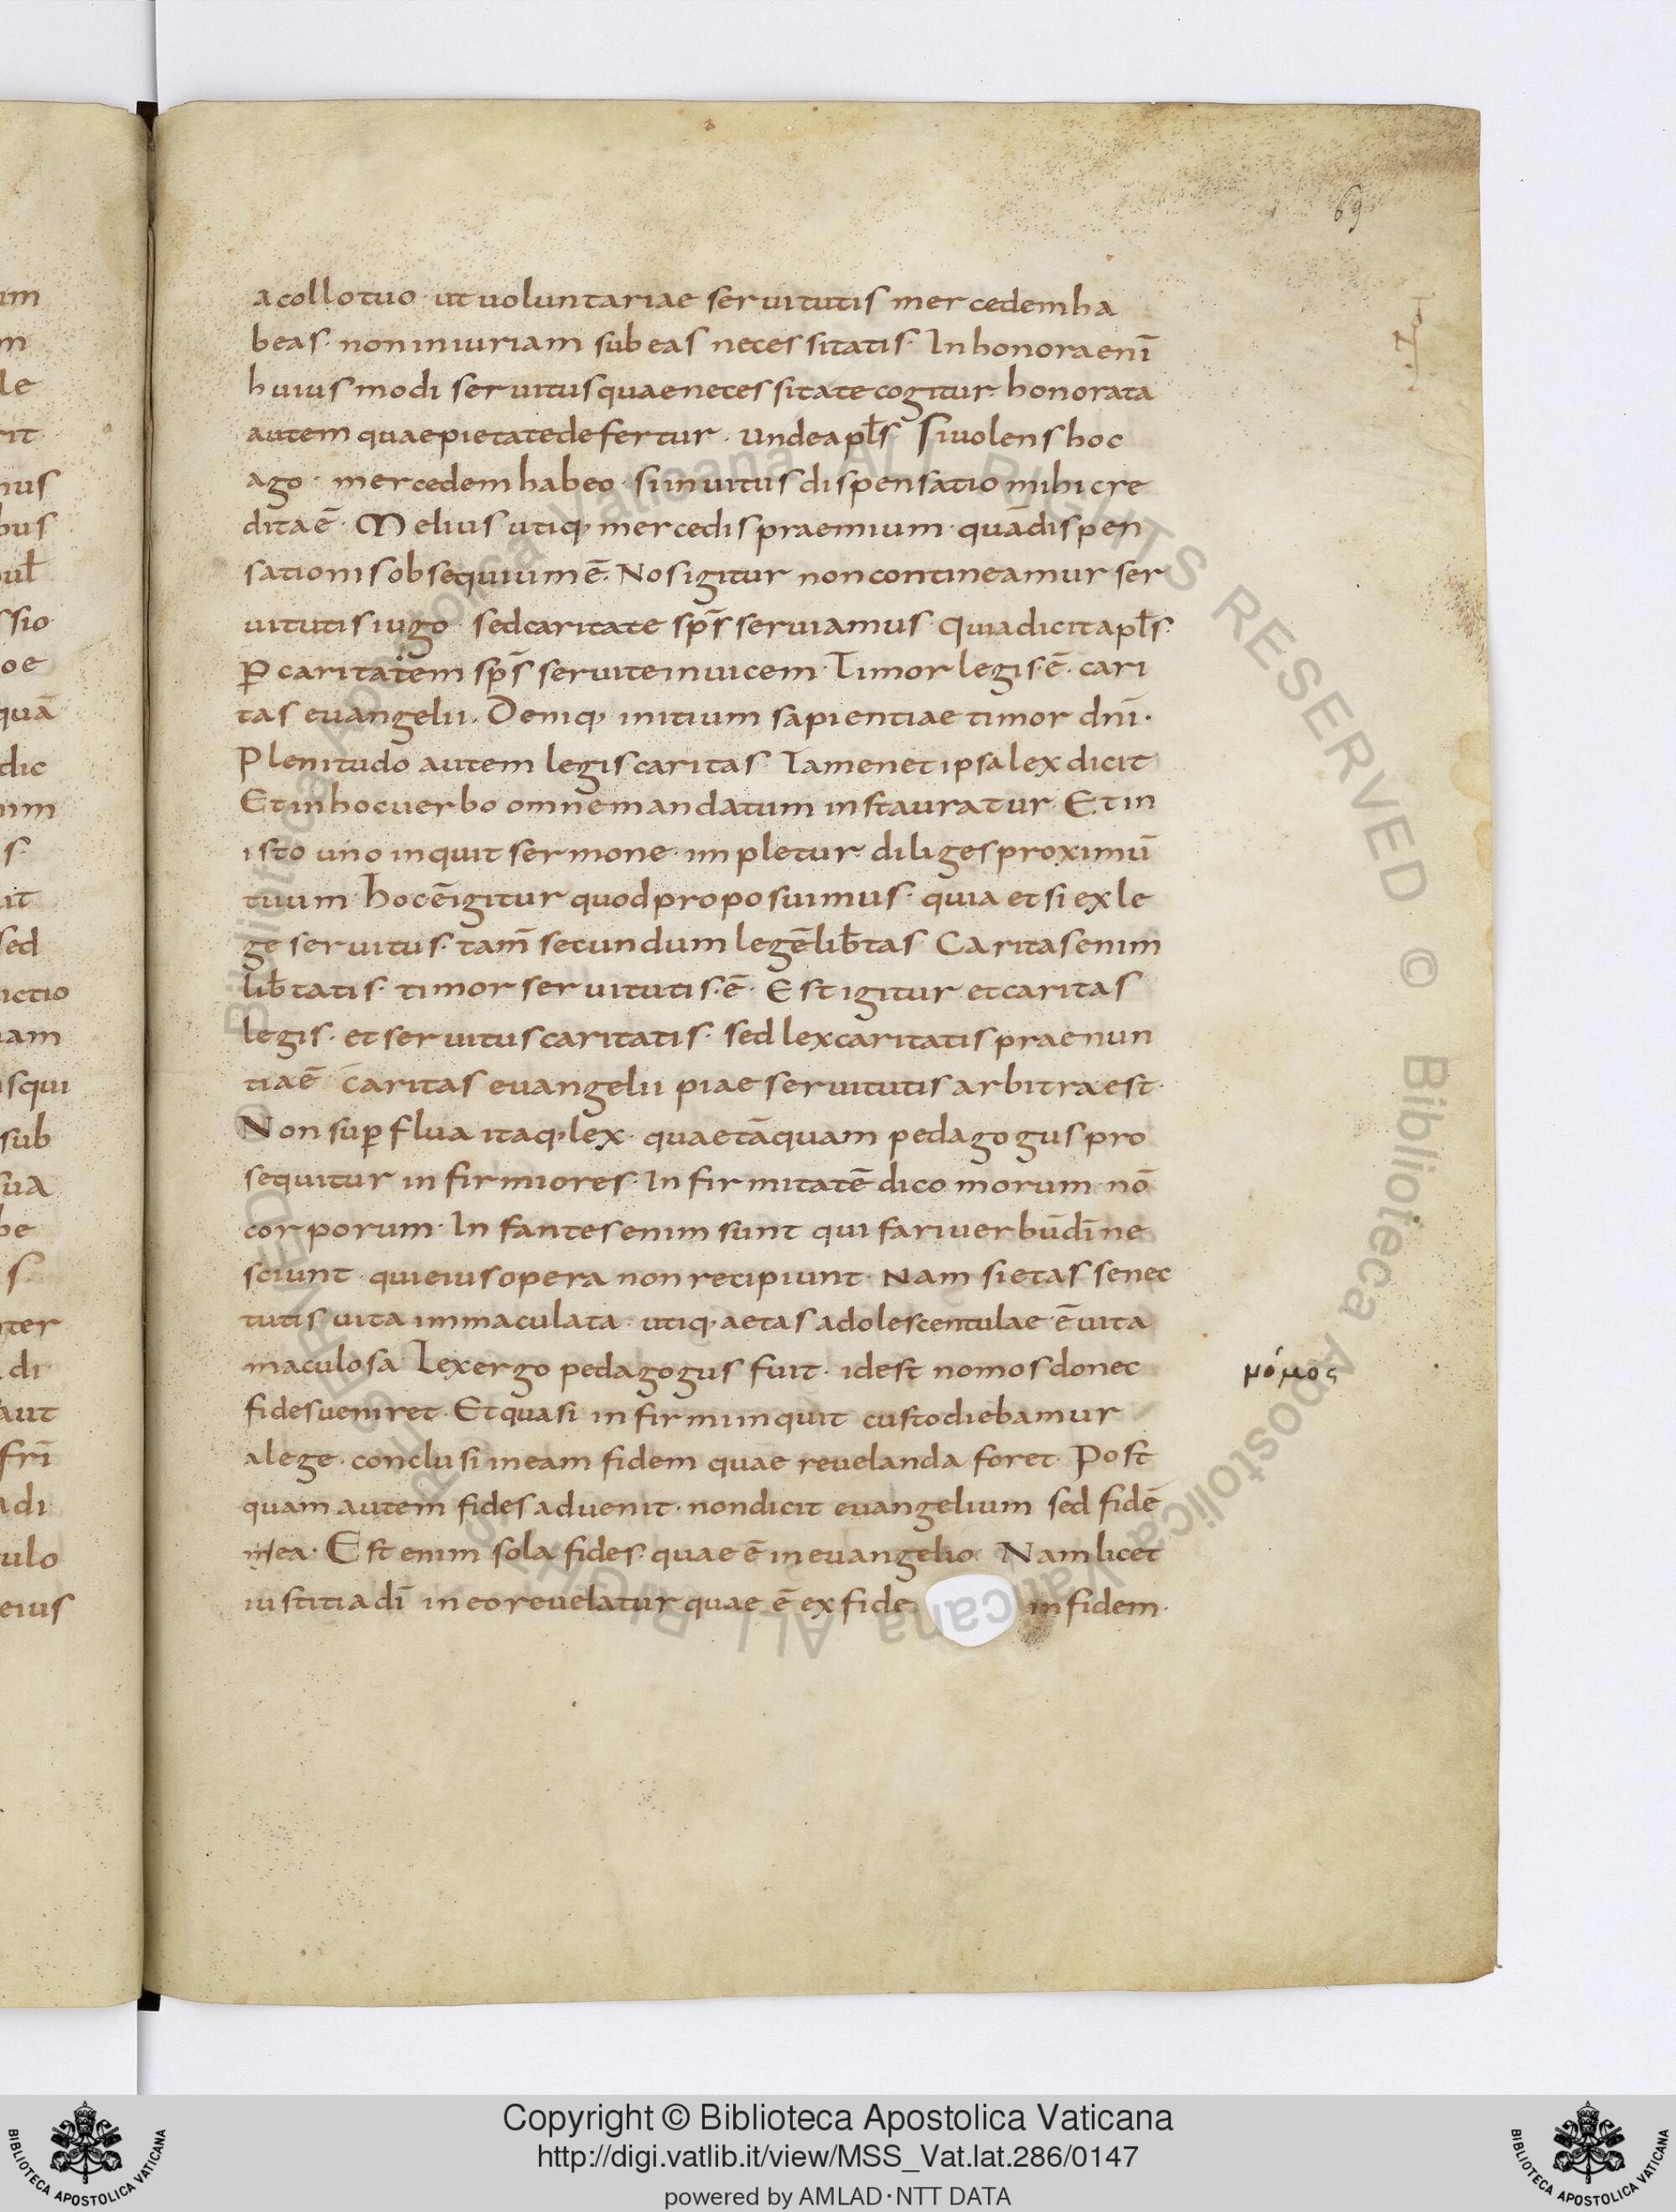 69
a collo tuo · ut uoluntariae seruitutis mercedem ha
beas · non iniuriam subeas necessitatis · Inhonora eni̅
huiusmodi seruitus quae necessitate cogitur · honorata
autem quae pietate defertur · unde apl̅s Si uolens hoc
ago · mercedem habeo · si inuitus dispensatio mihi cre
dita e̅ · Melius utiq; mercedis praemium · qua̅ dispen
sationis obsequium e̅ · Nos igitur non contineamur ser
uitutis iugo · sed caritate sp̅s seruiamus · Quia dicit apl̅s ·
ꝑ caritatem sp̅s seruite inuicem · Timor legis · e̅ · cari
tas euangelii · Deniq; initium sapientiae timor dn̅i ·
Plenitudo autem legis caritas · Tamen et ipsa lex dicit
Et in hoc uerbo omne mandatum instauratur · Et in
isto uno inquit sermone · impletur · diliges proximu̅
tuum · hoc e̅ igitur quod proposuimus · quia et si ex le
ge seruitus · tam̅ secundum lege̅ lib̅tas · Caritas enim
lib̅tatis · timor seruitutis · e̅ · Est igitur et caritas
legis · et seruitus caritatis · sed lex caritatis praenun
tia e̅ · Caritas euangelii piae seruitutis arbitra est ·
Non suꝑflua itaq; lex · quae ta̅quam pedagogus pro
sequitur infirmiores · Infirmitate̅ dico morum no̅
corporum · Infantes enim sunt qui fari uerbu̅ di̅ ne
sciunt · qui eius opera non recipiunt · Nam si etas senec
tutis uita immaculata · utiq; aetas adolescentulae · e̅ uita
maculosa · Lex ergo pedagogus fuit · idest nomos donec
νόμος
fides ueniret · Et quasi infirmi inquit custodiebamur
a lege · conclusi in eam fidem quae reuelanda foret · Post
quam autem fides aduenit · non dicit euangelium sed fide̅
mea · Est enim sola fides · quae e̅ in euangelio · Nam licet
iustitia di̅ in eo reuelatur quae e̅ ex fide in fidem ·
Copyright © Biblioteca Apostolica Vaticana
http://digi.vatlib.it/view/MSS_Vat.lat.286/0147
powered by AMLAD · NTT DATA